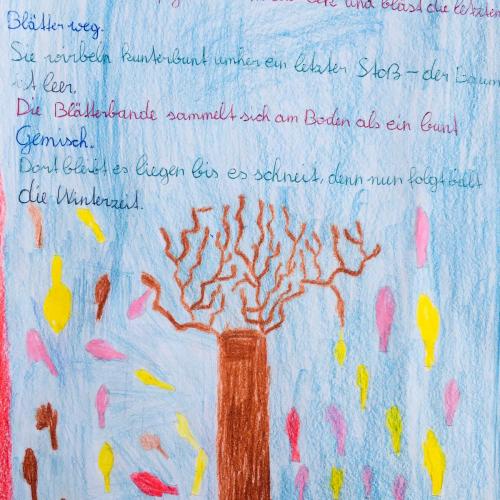 und bläst die letzten
Blätter weg.
Sie wirbeln kunterbunt umher ein letzter Stoß – der Baum
ist leer.
Die Blätterbande sammelt sich am Boden als ein bunt
Gemisch.
Dort bleibt es liegen bis es schneit, denn nun folgt bald
die Winterzeit.